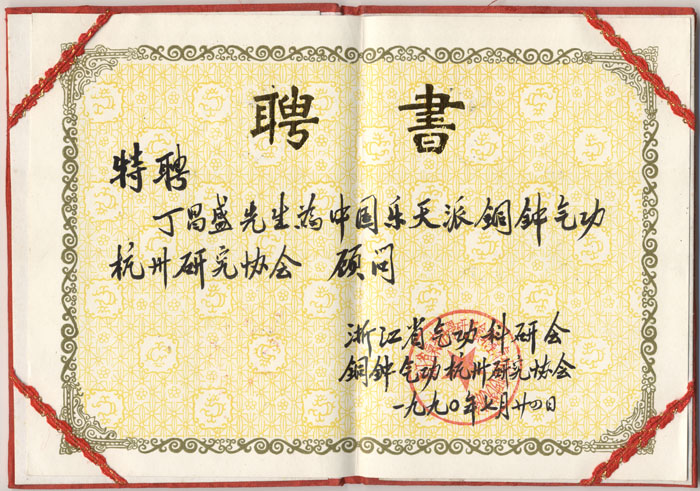 聘書
特聘
丁昌盛先生為中国乐天派銅鈡气功
杭州研究协会 顾问
浙江省气功科研会
銅鈡气功杭州研究协会
一九九〇年七月廿四日